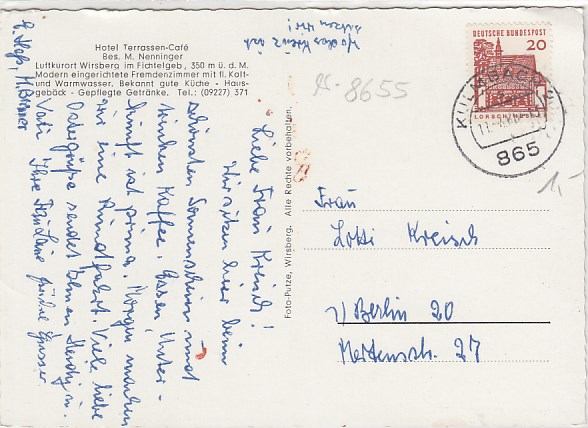 Hotel Terrassen-Café
Bes. M. Nenninger
Luftkurort Wirsberg im Fichtelgeb., 350 m ü. d. M.
Modern eingerichtete Fremdenzimmer mit fl. Kalt-
und Warmwasser. Bekannt gute Küche - Haus-
gebäck - Gepflegte Getränke. Tel.: (09227) 371
sitzen wir!
8655
DEUTSCHE BUNDESPOST
20
LORSCH/HESSEN
KULMBACH
865
1,-
Liebe Frau Kreisch!
Wir sitzen hier beim
schönsten Sonnenschein und
trinken Kaffee. Essen, Unter-
kunft ist prima. Morgen machen
wir eine Rundfahrt. Viele liebe
Ostergrüße sendet Ihnen Herdy u.
Vati Ihre
Foto-Putze, Wirsberg. Alle Rechte vorbehalten.
Frau
Lotti Kreisch
1) Berlin 20
Mertensstr. 27